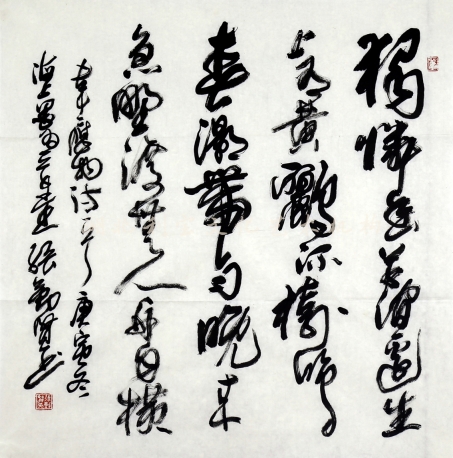 獨憐幽草澗邊生
上有黄鸝深樹鳴
春潮帶雨晚来
急野渡無人舟自横
韋應物詩一首庚寅冬
張